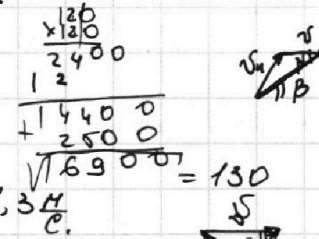 120
×120
2400
12
14400
+ 2500
√16900 = 130
, 3 м/с.
v
vн
β
v